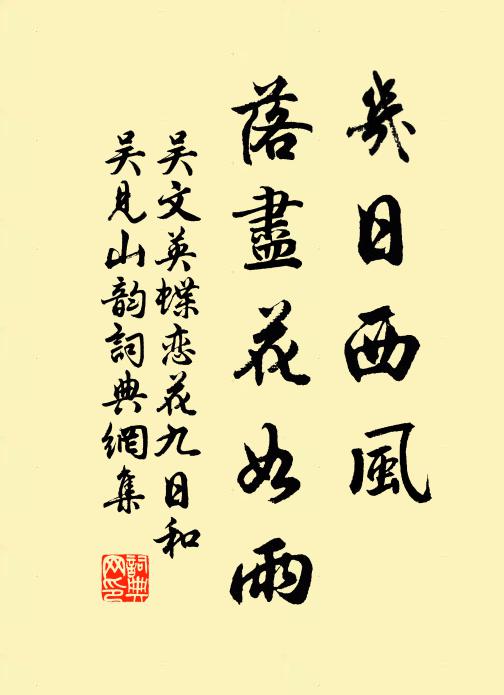 幾日西風
落盡花如雨
吴文英蝶恋花九日和
吴見山韵詞典網集
詞典网印